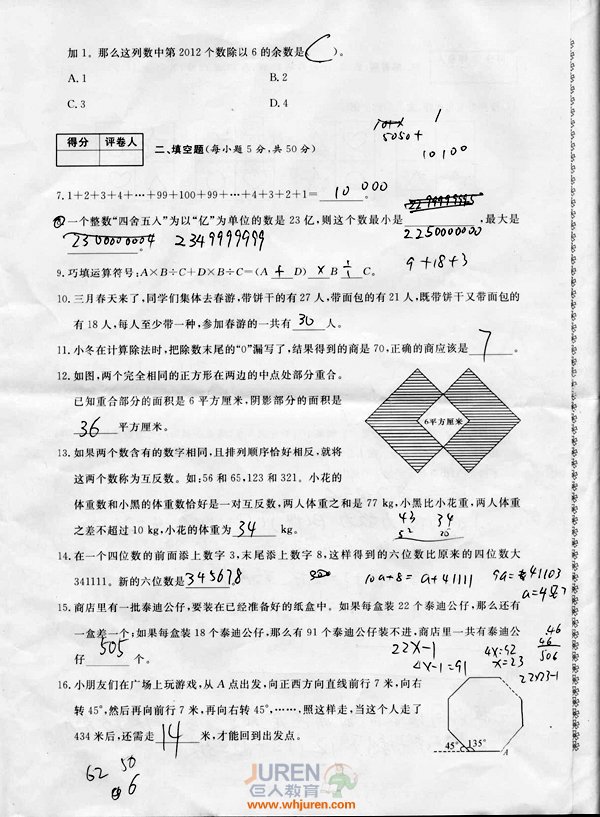 加1。那么这列数中第2012个数除以6的余数是( C )。
A.1 B.2
C.3 D.4
5050+
1
10100
得分 评卷人
二、填空题(每小题5分,共50分)
7.1+2+3+4+…+99+100+99+…+4+3+2+1=10000
8.一个整数“四舍五入”为以“亿”为单位的数是23亿,则这个数最小是2250000000,最大是
2349999999。
9+18+3
9.巧填运算符号:A×B÷C+D×B÷C=(A + D) × B ÷ C。
10.三月春天来了,同学们集体去春游,带饼干的有27人,带面包的有21人,既带饼干又带面包的
有18人,每人至少带一种,参加春游的一共有30人。
11.小冬在计算除法时,把除数末尾的“0”漏写了,结果得到的商是70,正确的商应该是7。
12.如图,两个完全相同的正方形在两边的中点处部分重合。
已知重合部分的面积是6平方厘米,阴影部分的面积是
36平方厘米。
6平方厘米
13.如果两个数含有的数字相同,且排列顺序恰好相反,就将
这两个数称为互反数。如:56和65,123和321。小花的
体重数和小黑的体重数恰好是一对互反数,两人体重之和是77 kg,小黑比小花重,两人体重
之差不超过10 kg,小花的体重为34 kg。
43 34
52 25
14.在一个四位数的前面添上数字3,末尾添上数字8,这样得到的六位数比原来的四位数大
341111。新的六位数是345678
10a+8=a+41111
9a=41103
15.商店里有一批泰迪公仔,要装在已经准备好的纸盒中。如果每盒装22个泰迪公仔,那么还有
一盒差一个;如果每盒装18个泰迪公仔,那么有91个泰迪公仔装不进,商店里一共有泰迪公
仔505个。
22X-1
4X-1=91
4X=92
X=23
46
46
506
22X23-1
16.小朋友们在广场上玩游戏,从A点出发,向正西方向直线前行7米,向右
转45°,然后再向前行7米,再向右转45°,……,照这样走,当这个人走了
434米后,还需走14米,才能回到出发点。
45° 135° A
62 50
6
JUREN
巨人教育
www.whjuren.com